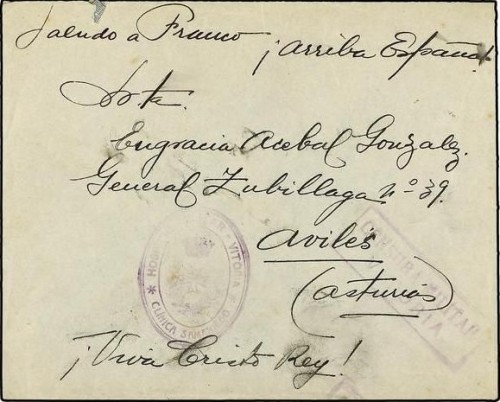 Saludo a Franco ¡Arriba España!
Srta.
Engracia Acebal González.
General Zubillaga nº 39.
Avilés
(Asturias)
¡Viva Cristo Rey!
VITORIA
CLINICA
CENSURA MILITAR